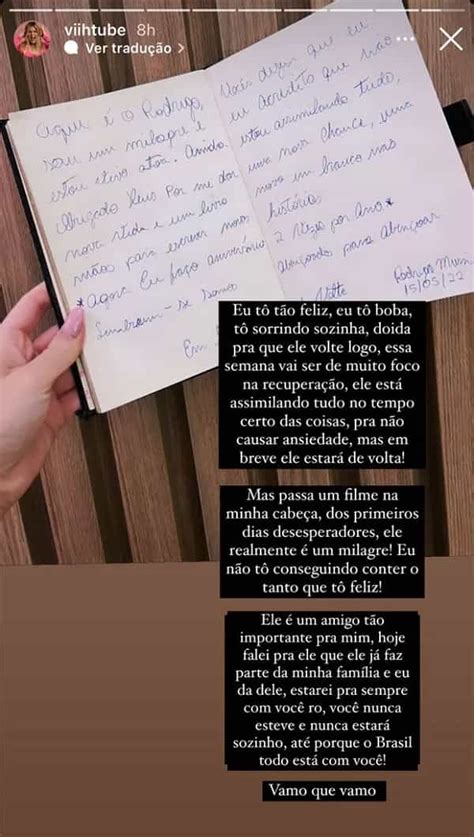 viihtube 8h
Ver tradução >
Aqui é o Rodrigo,
sou um milagre e
estou vivo
Obrigado Deus Por me dar
nova vida e um livro
para escrever nova
*Agora Eu faço aniversário
Em
Vocês dizem que eu
eu acredito que
estou assimilando tudo,
uma nova chance, uma
nova em branco
história
2 vezes por Ano*
Abençoado para Abençoar
Rodrigo
15/05/22
Eu tô tão feliz, eu tô boba,
tô sorrindo sozinha, doida
pra que ele volte logo, essa
semana vai ser de muito foco
na recuperação, ele está
assimilando tudo no tempo
certo das coisas, pra não
causar ansiedade, mas em
breve ele estará de volta!
Mas passa um filme na
minha cabeça, dos primeiros
dias desesperadores, ele
realmente é um milagre! Eu
não tô conseguindo conter o
tanto que tô feliz!
Ele é um amigo tão
importante pra mim, hoje
falei pra ele que ele já faz
parte da minha família e eu
da dele, estarei pra sempre
com você ro, você nunca
esteve e nunca estará
sozinho, até porque o Brasil
todo está com você!
Vamo que vamo